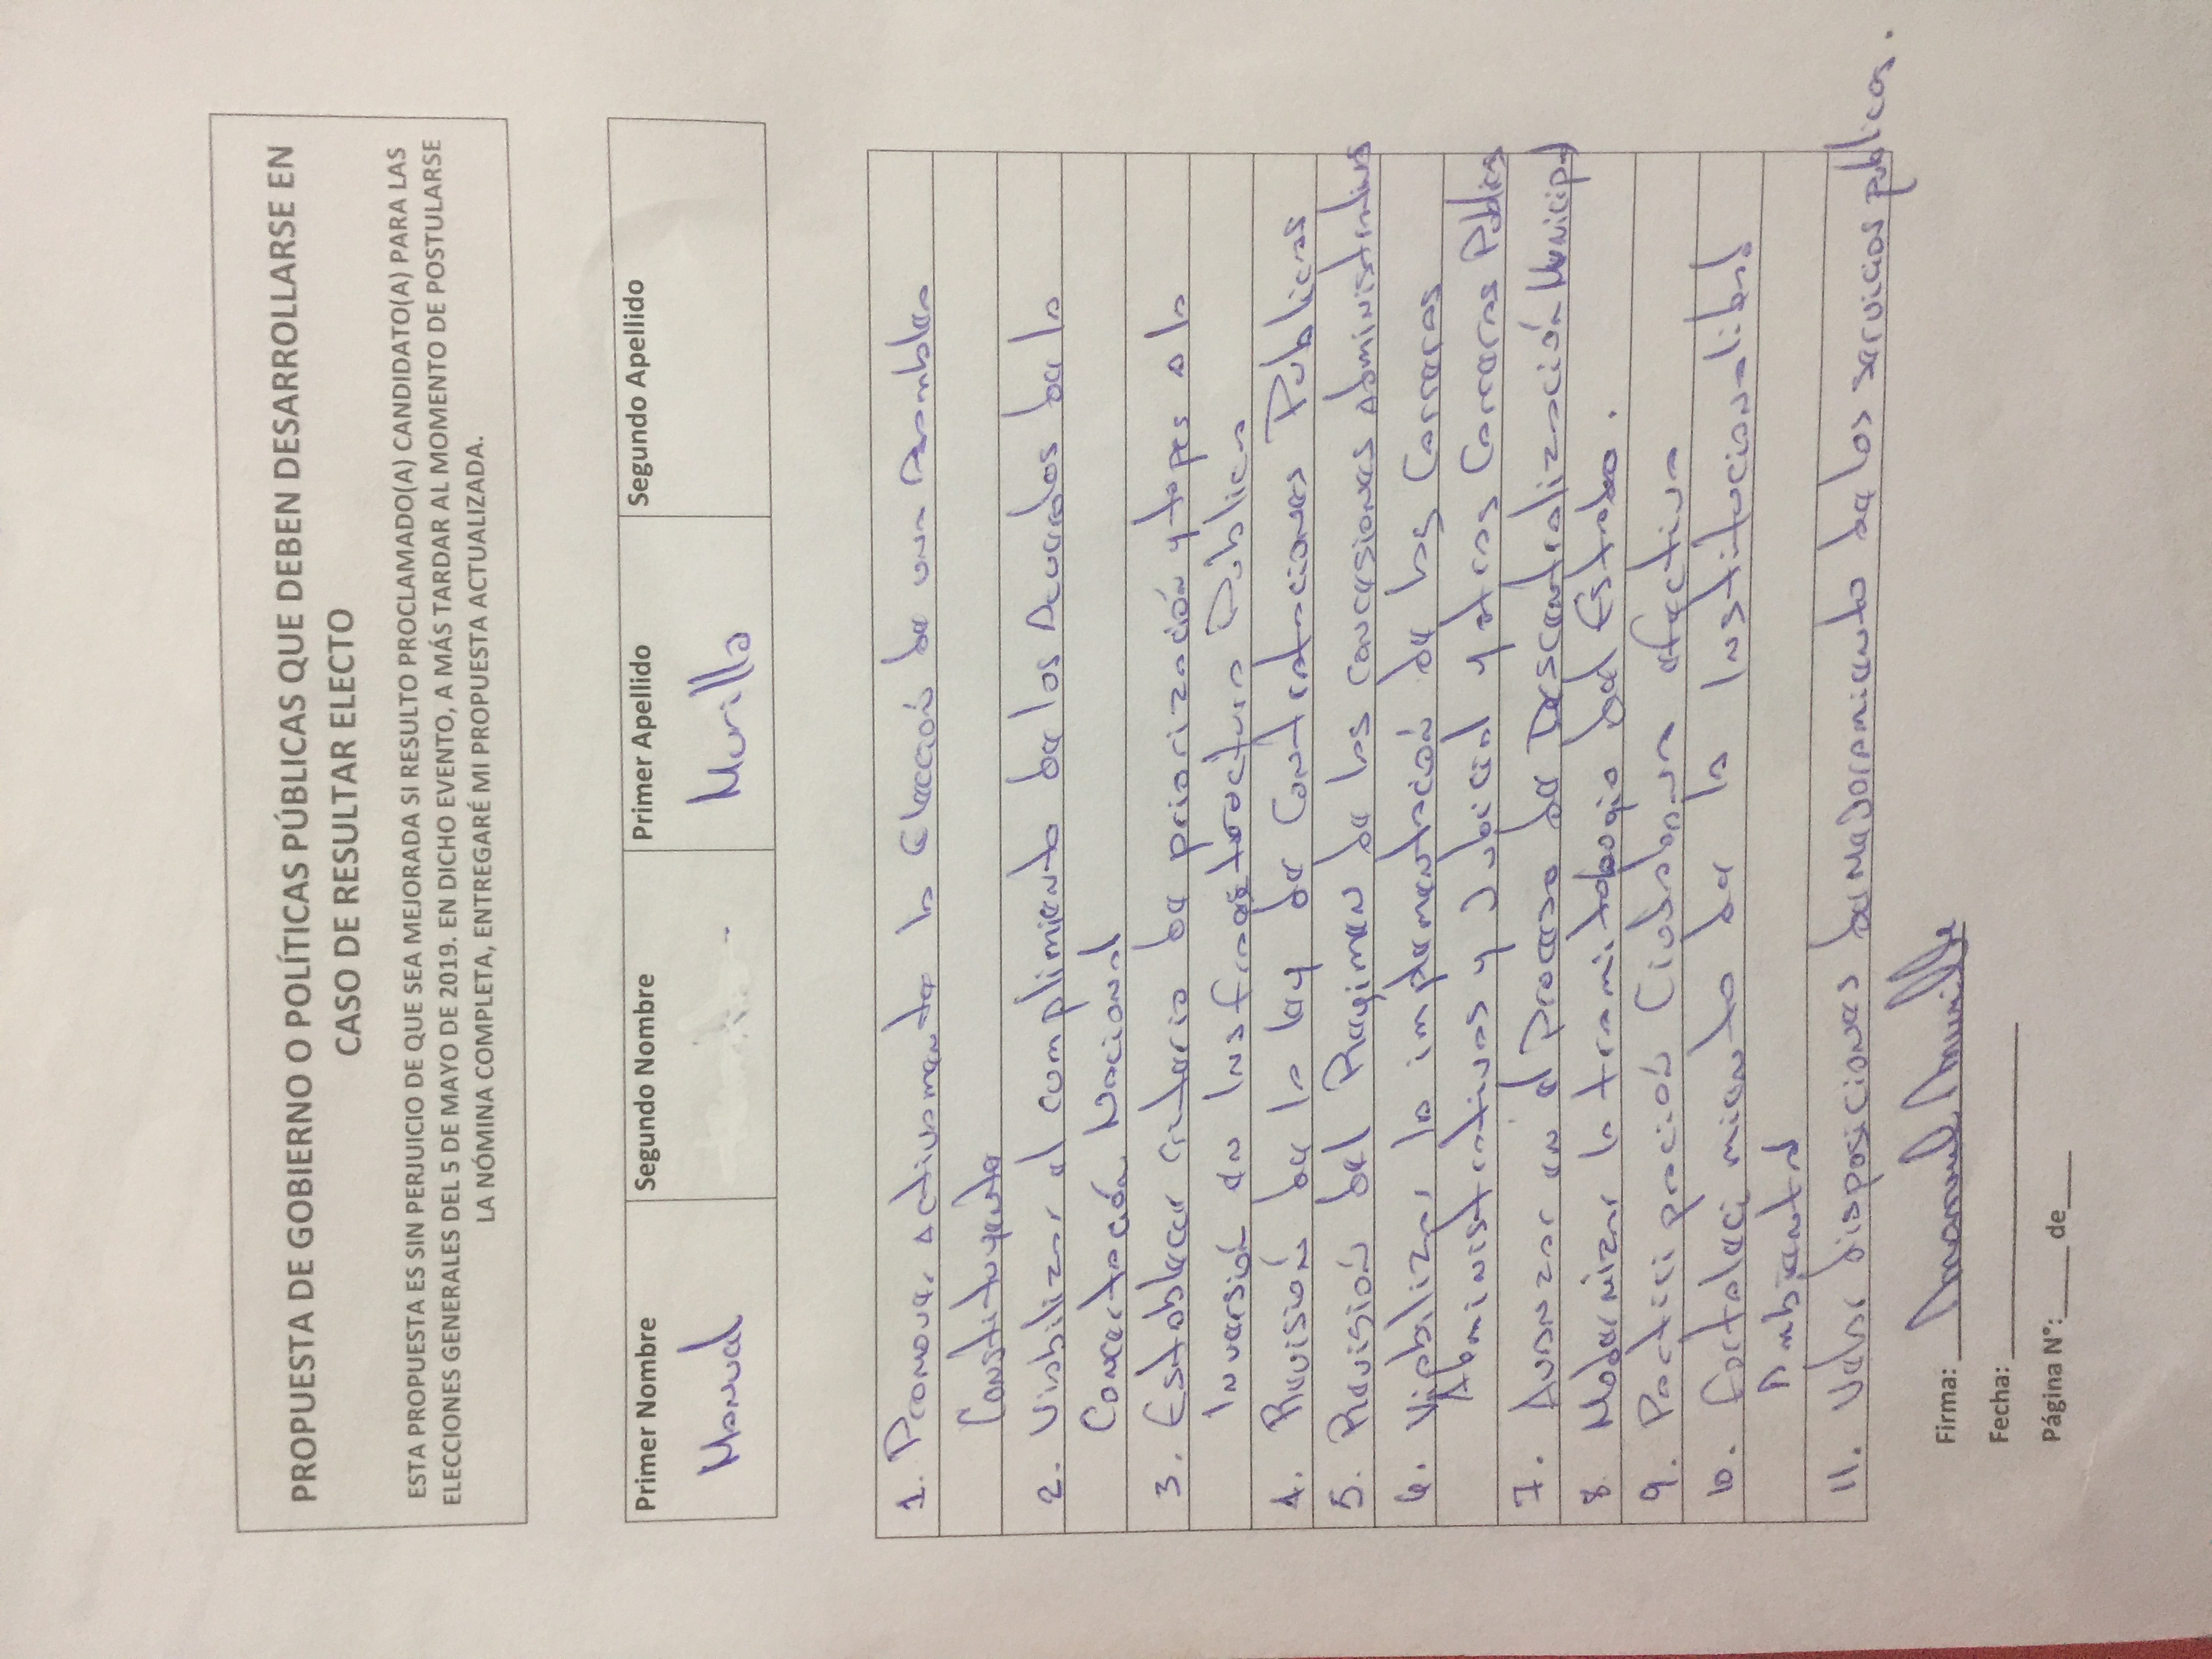 PROPUESTA DE GOBIERNO O POLÍTICAS PÚBLICAS QUE DEBEN DESARROLLARSE EN
CASO DE RESULTAR ELECTO
ESTA PROPUESTA ES SIN PERJUICIO DE QUE SEA MEJORADA SI RESULTO PROCLAMADO(A) CANDIDATO(A) PARA LAS
ELECCIONES GENERALES DEL 5 DE MAYO DE 2019. EN DICHO EVENTO, A MÁS TARDAR AL MOMENTO DE POSTULARSE
LA NÓMINA COMPLETA, ENTREGARÉ MI PROPUESTA ACTUALIZADA.
Primer Nombre Segundo Nombre Primer Apellido Segundo Apellido
Manuel Murillo
1. Promover activamente la Elección de una Asamblea
Constituyente
2. Viabilizar el cumplimiento de los Acuerdos de la
Concertación Nacional
3. Establecer criterio de priorización y topes a la
Inversión en Infraestructura Publica
4. Revisión de la ley de Contrataciones Publicas
5. Revisión del Regimen de las concesiones Administrativas
6. Viabilizar la implementación de las Carreras
Administrativas y Judicial y otras Carreras Publicas
7. Avanzar en el Proceso de Descentralización Municipal
8. Modernizar la tramitología del Estado.
9. Participación Ciudadana efectiva
10. Fortalecimiento de la Institucionalidad
Ambiental
11. Velar disposiciones de mejoramiento de los servicios publicos.
Firma: Manuel Murillo
Fecha:
Página N°:____ de____